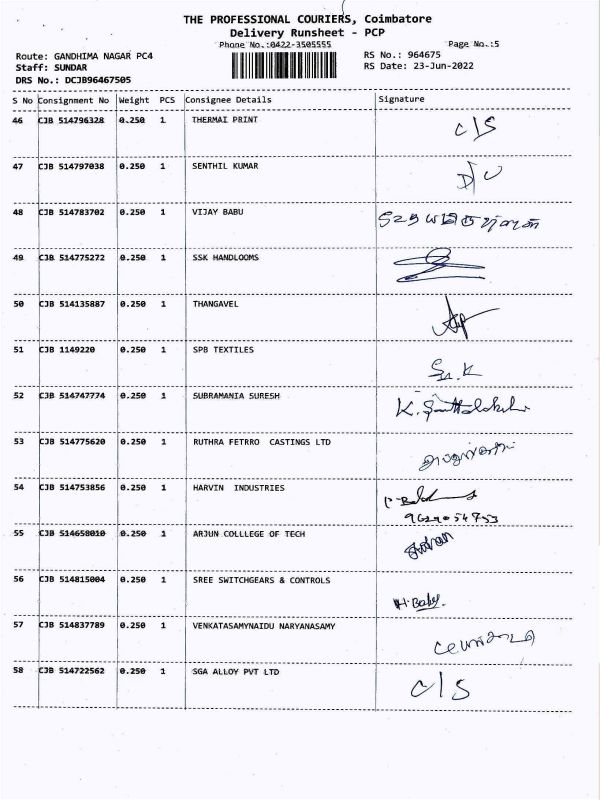 THE PROFESSIONAL COURIERS, Coimbatore
Delivery Runsheet - PCP
Phone No.:0422-3505555
Page No.:5
Route: GANDHIMA NAGAR PC4
RS No.: 964675
Staff: SUNDAR
RS Date: 23-Jun-2022
DRS No.: DCJB96467505
S No Consignment No Weight PCS Consignee Details Signature
46 CJB 514796328 0.250 1 THERMAI PRINT C/S
47 CJB 514797038 0.250 1 SENTHIL KUMAR
48 CJB 514783702 0.250 1 VIJAY BABU
49 CJB 514775272 0.250 1 SSK HANDLOOMS
50 CJB 514135887 0.250 1 THANGAVEL
51 CJB 1149220 0.250 1 SPB TEXTILES
52 CJB 514747774 0.250 1 SUBRAMANIA SURESH
53 CJB 514775620 0.250 1 RUTHRA FETRRO CASTINGS LTD
54 CJB 514753856 0.250 1 HARVIN INDUSTRIES
9629054753
55 CJB 514658010 0.250 1 ARJUN COLLLEGE OF TECH
56 CJB 514815004 0.250 1 SREE SWITCHGEARS & CONTROLS
H. Baby.
57 CJB 514837789 0.250 1 VENKATASAMYNAIDU NARYANASAMY
58 CJB 514722562 0.250 1 SGA ALLOY PVT LTD C/S